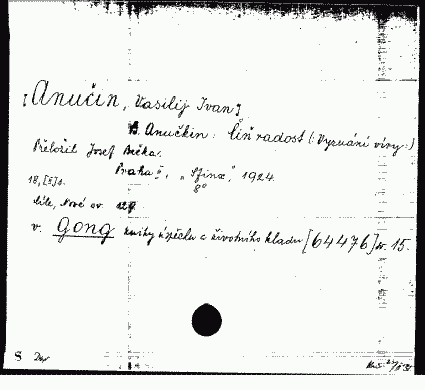 [Anučin, Vasilij Ivan]
B. Anučkin: Čiň radost (: Vyznání víry :)
Přeložil Josef Bečka.
Praha, "Sfinx", 1924.
8°
18, [5] s.
v. Gong knihy úspěchu a životního kladu [64476] sv. 15.
S